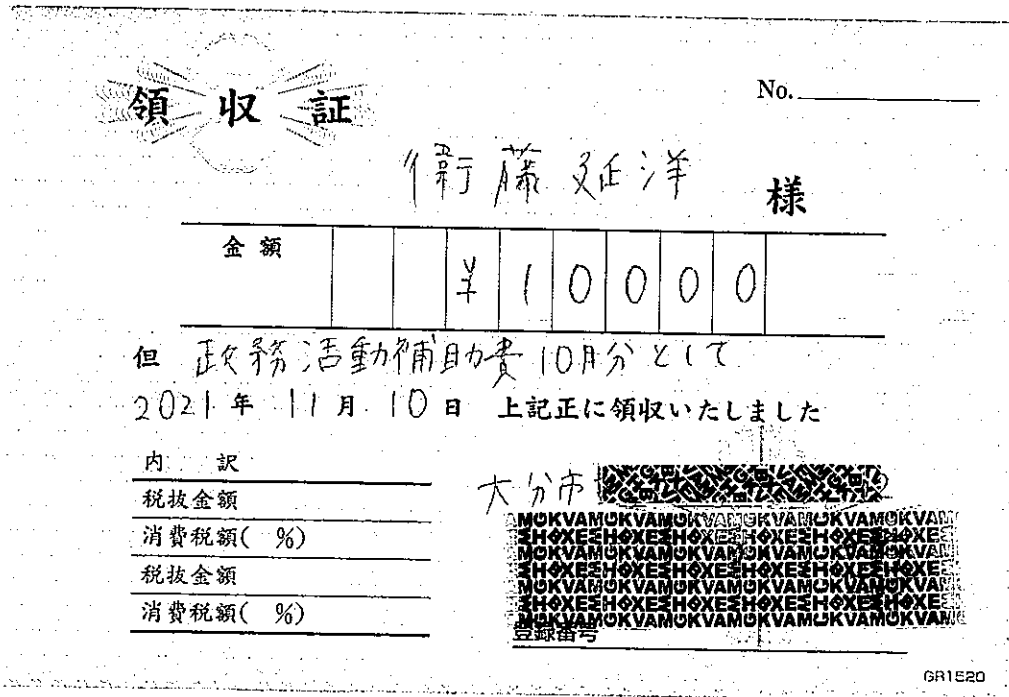 領収証
No.
衛藤延洋 様
金額 ¥10000
但 政務活動補助費10月分として
2021年11月10日 上記正に領収いたしました
内訳
税抜金額
消費税額( %)
税抜金額
消費税額( %)
大分市
登録番号
GR1520